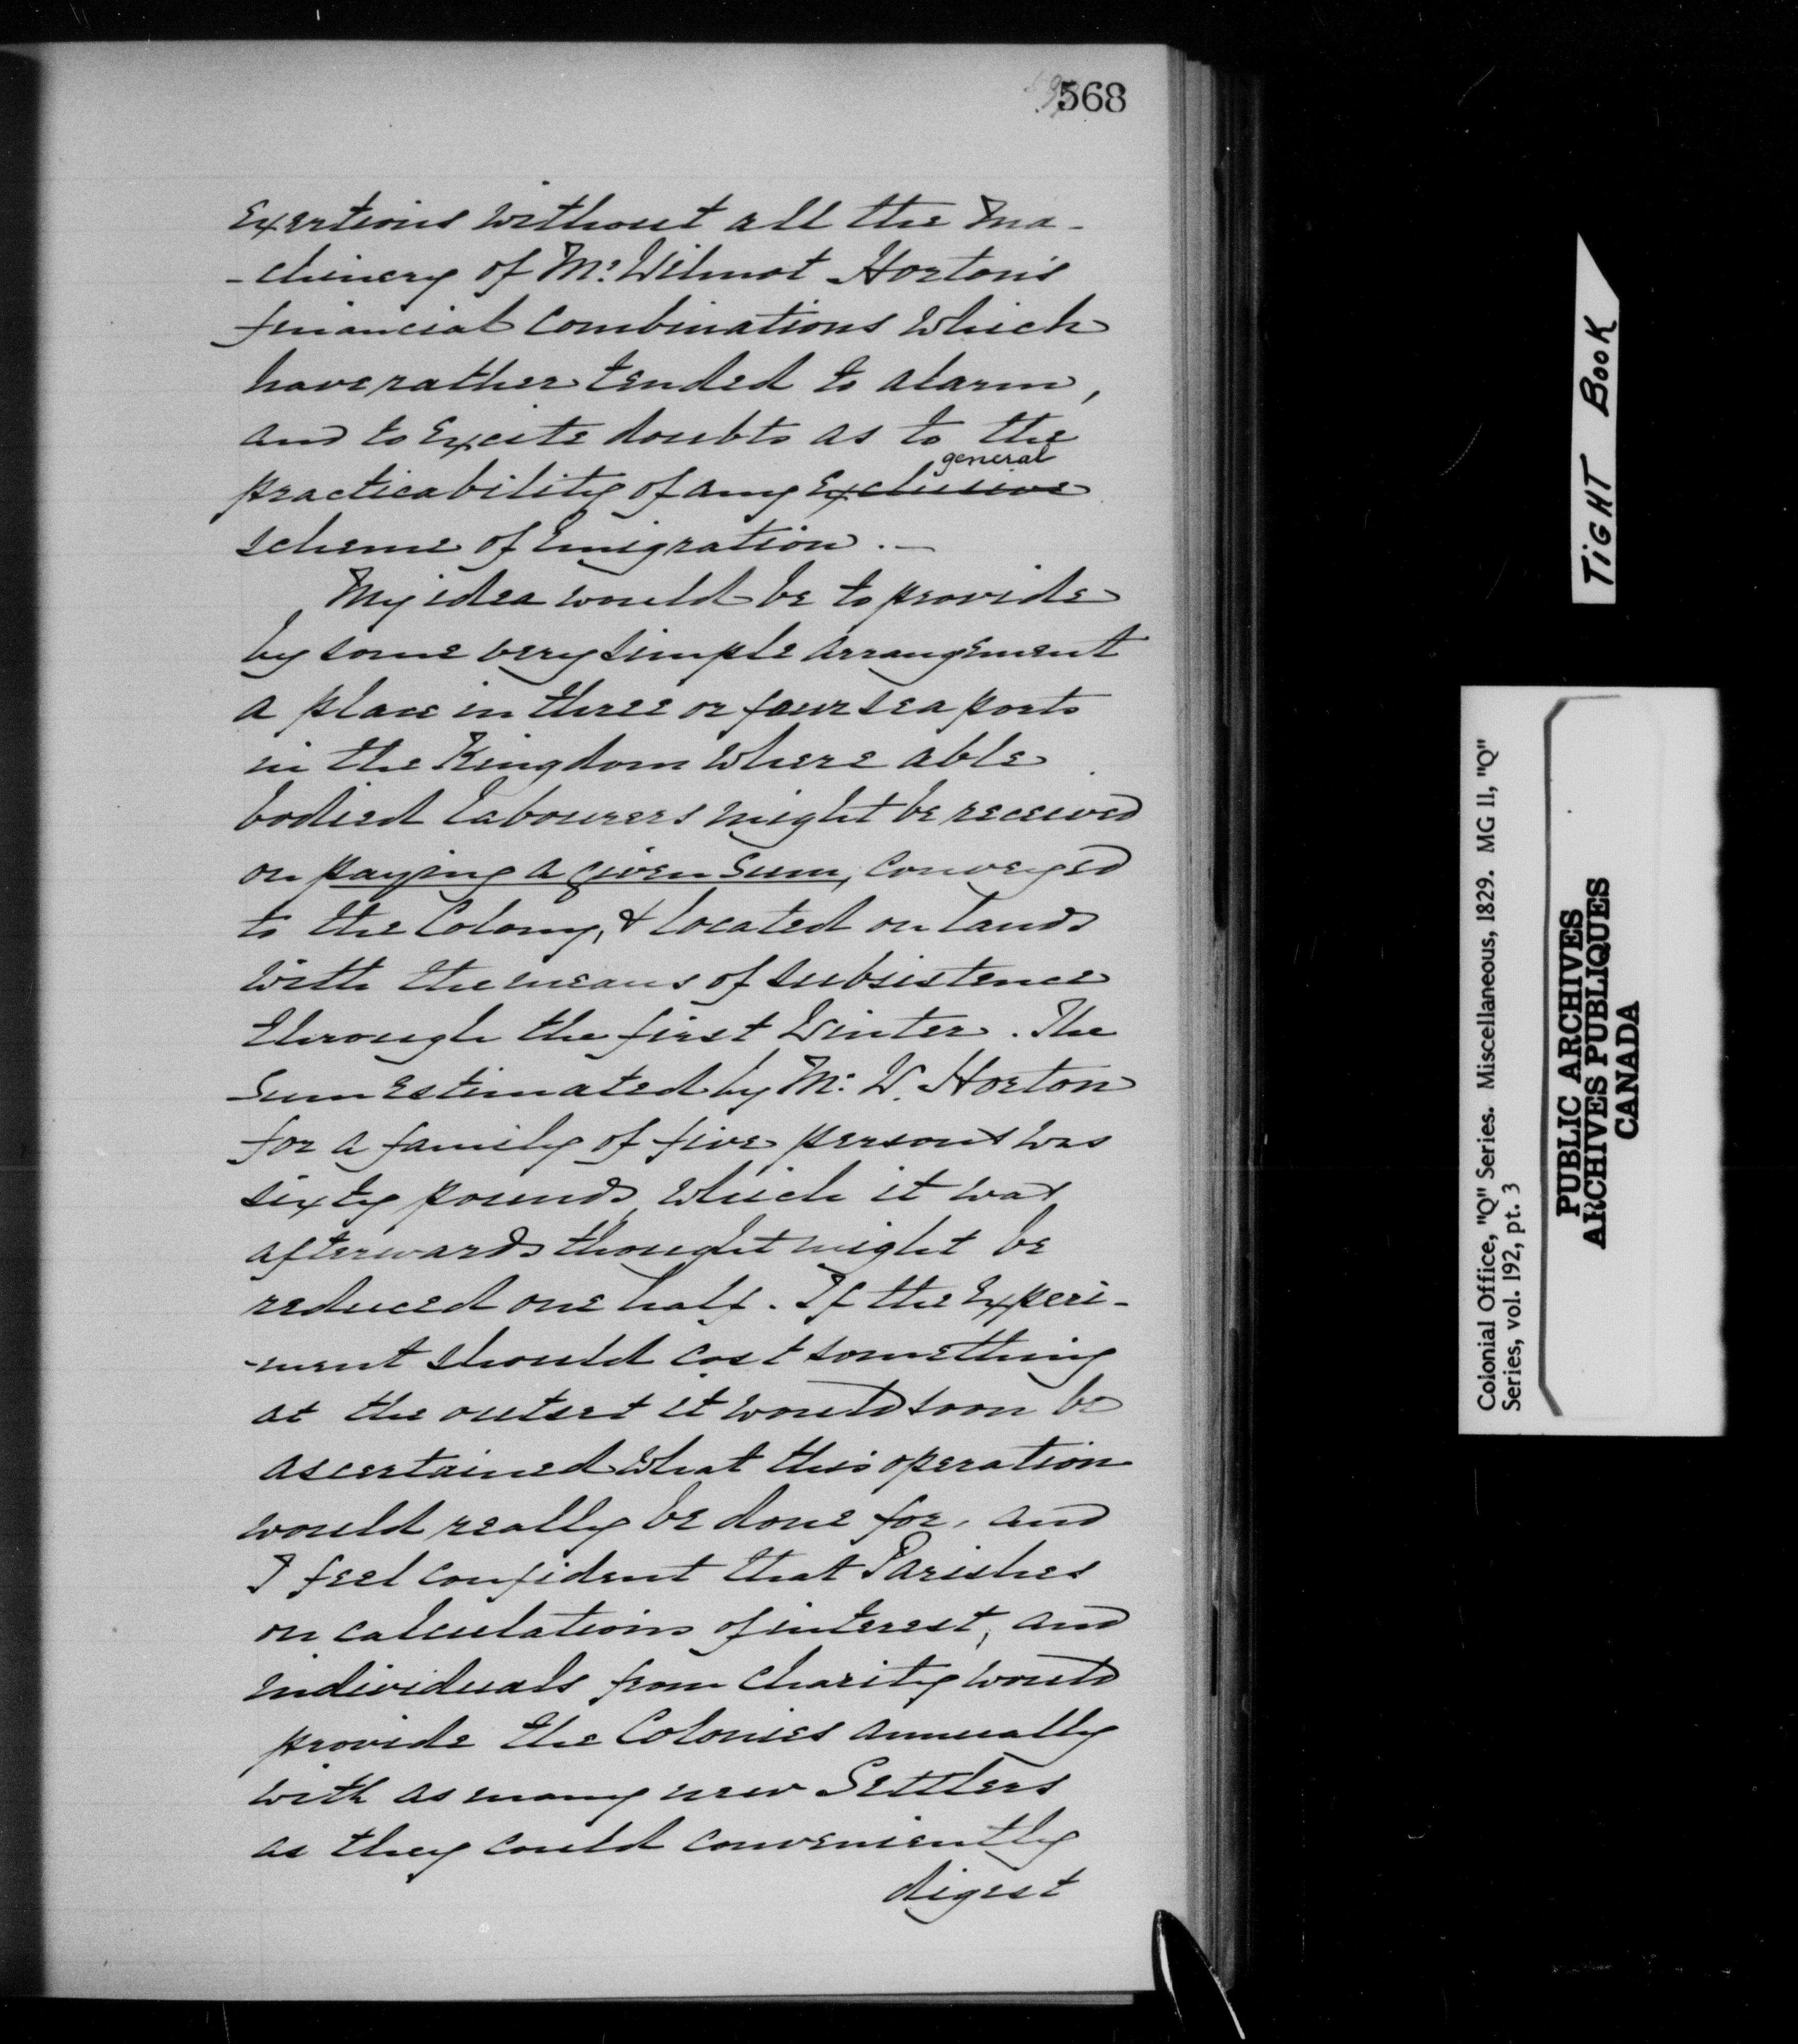 568
Exertions without all the Ma-
-chinery of Mr. Wilmot Horton's
financial Combinations which
have rather tended to alarm,
and to Excite doubts as to the
general
practicability of any Exclusive
scheme of Emigration. —
My idea would be to provide
by some very simple arrangement
a place in three or four sea ports
in the Kingdom where able
bodied labourers might be received
on paying a given sum, Conveyed
to the Colony, & located on lands
with the means of subsistence
through the first Winter. The
Sum Estimated by Mr. W. Horton
for a family of five persons was
sixty pounds, which it was
afterwards thought might be
reduced one half. If the Experi-
-ment should cost something
at the outset it would soon be
ascertained what this operation
would really be done for, and
I feel confident that Parishes
on calculations of interest, and
individuals from charity would
provide the Colonies annually
with as many new Settlers
as they could conveniently
digest
TIGHT BOOK
Colonial Office, "Q" Series. Miscellaneous, 1829. MG 11, "Q"
Series, vol. 192, pt. 3
PUBLIC ARCHIVES
ARCHIVES PUBLIQUES
CANADA